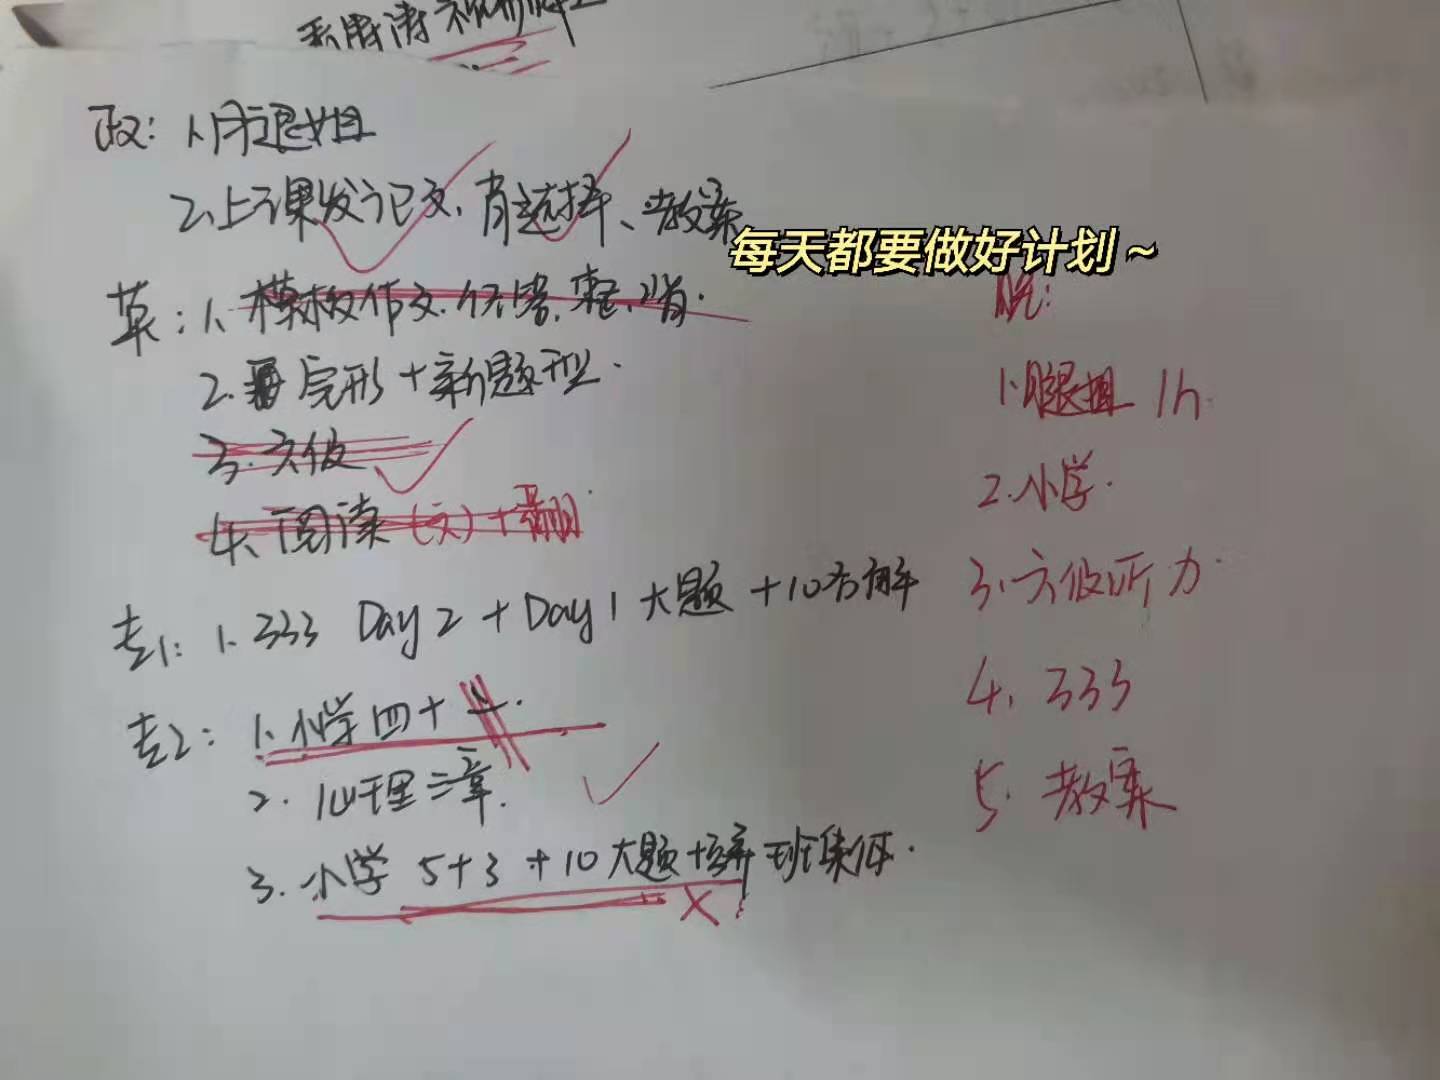 政：1、腿姐
2、上课发记文、肖选择、教案
每天都要做好计划～
英：1、模板作文.背.
2.完形＋新题型.
3.六级
4、阅读(文)＋翻
专1：1、333 Day2＋Day1大题＋10名解
专2：1、小学四十二.
2.心理三章.
3.小学 5＋3＋10大题＋班集体.
晚：
1.腿姐 1h
2.小学.
3、六级听力
4、333
5.教案